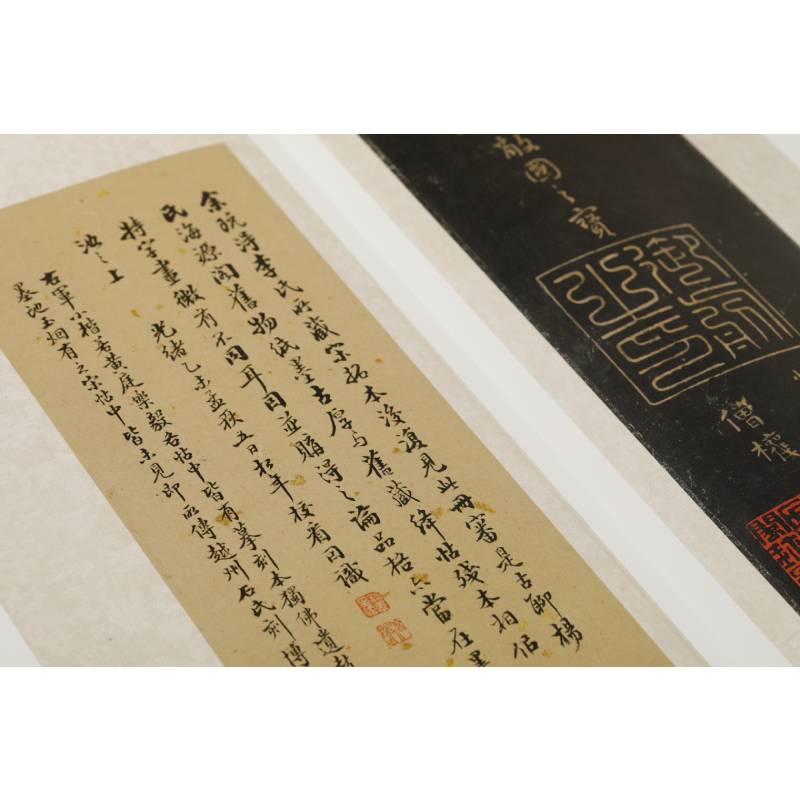 敵國之寶
僧權
余既得李氏所藏宋拓本後復見此冊審是古聊楊
氏海源閣舊物紙墨古厚与舊藏絳帖殘本相侶
特字畫微有不同耳因並購得之論品格亦當在
汝之上
光緒乙未孟秋五日松年校看因識
右軍小楷若黃庭樂毅各帖中皆有摹刻本獨佛遺
墨池玉烟有之宋帖中皆未見即所傳越州石氏刻博